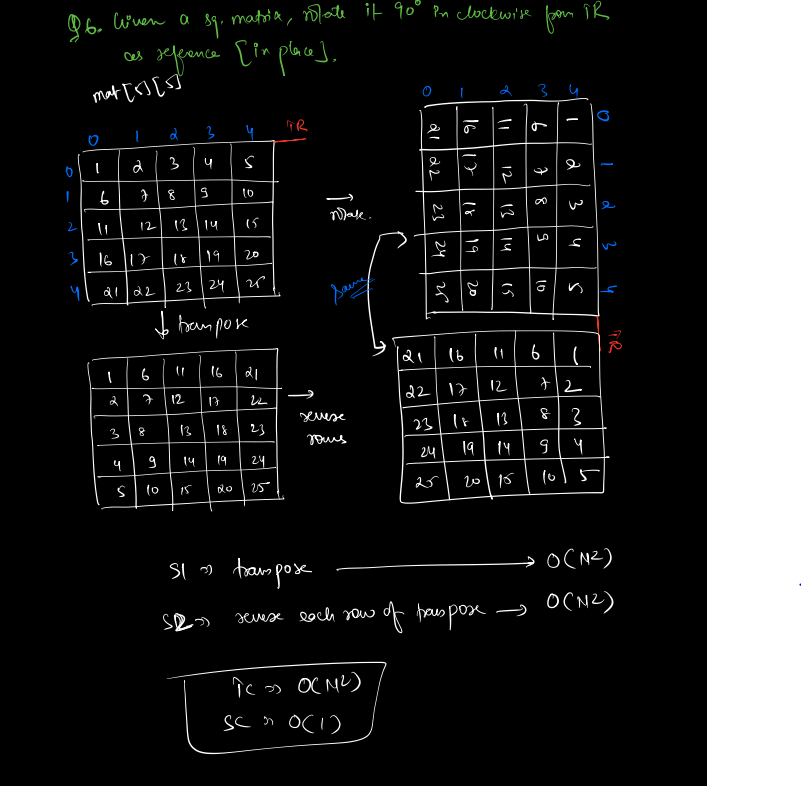 Q6. Given a sq. matrix, rotate it 90° in clockwise from TR
as reference [in place].
mat[5][5]
0 1 2 3 4 TR
0 1 2 3 4 5
1 6 7 8 9 10
2 11 12 13 14 15
3 16 17 18 19 20
4 21 22 23 24 25
rotate.
0 1 2 3 4
21 16 11 6 1 0
22 17 12 7 2 1
23 18 13 8 3 2
24 19 14 9 4 3
25 20 15 10 5 4
TR
same
transpose
1 6 11 16 21
2 7 12 17 22
3 8 13 18 23
4 9 14 19 24
5 10 15 20 25
reverse
rows
21 16 11 6 1
22 17 12 7 2
23 18 13 8 3
24 19 14 9 4
25 20 15 10 5
S1 => transpose → O(N2)
S2 => reverse each row of transpose → O(N2)
TC => O(N2)
SC => O(1)